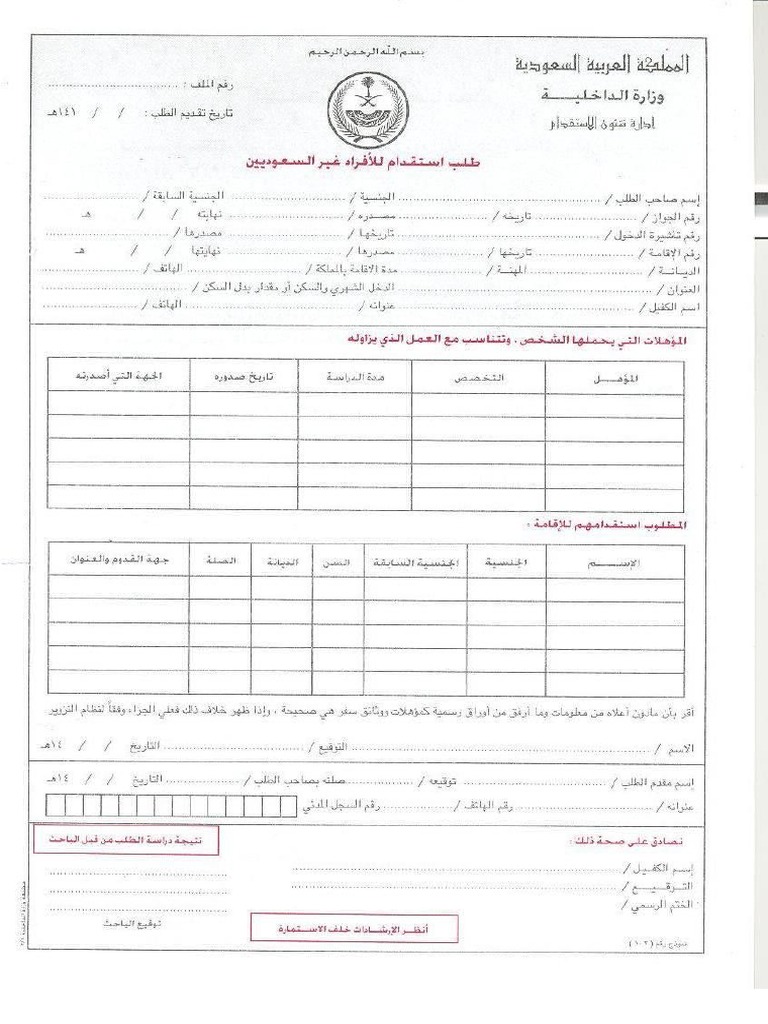 بسم الله الرحمن الرحيم
المملكة العربية السعودية
وزارة الداخليـــة
إدارة شئون الاستقدام
رقم الملف : ..............................
تاريخ تقديم الطلب : / / ١٤١هـ
طلب استقدام للأفراد غير السعوديين
إسم صاحب الطلب / .............................. الجنسية / .............................. الجنسية السابقة / ..............................
رقم الجواز / .................... تاريخه / .................... مصدره / .................... نهايته / / هـ
رقم تأشيرة الدخول / .................... تاريخها / .................... مصدرها / ....................
رقم الإقامة / .................... تاريخها / .................... مصدرها / .................... نهايتها / / هـ
الديـانــة / .................... المهنة / .................... مدة الاقامة بالمملكة / .................... الهاتف / ....................
العنوان / .................... الدخل الشهري والسكن أو مقدار بدل السكن / ....................
اسم الكفيل / .................... عنوانه / .................... الهاتف / ....................
المؤهلات التي يحملها الشخص ، وتتناسب مع العمل الذي يزاوله
المؤهــل التخصص مدة الدراسة تاريخ صدوره الجهة التي أصدرته
المطلوب استقدامهم للإقامة :
الإســـم الجنسية الجنسية السابقة السن الديانة الصلة جهة القدوم والعنوان
أقر بأن مادون أعلاه من معلومات وما أرفق من أوراق رسمية كمؤهلات ووثائق سفر هي صحيحة ، وإذا ظهر خلاف ذلك فعلي الجزاء وفقاً لنظام التزوير
الاسم / .................... التوقيع / .................... التاريخ / / ١٤هـ
إسم مقدم الطلب / .................... توقيعه / .................... صلته بصاحب الطلب / .................... التاريخ / / ١٤هـ
عنوانه / .................... رقم الهاتف / .................... رقم السجل المدني
نصادق على صحة ذلك :
نتيجة دراسة الطلب من قبل الباحث
إسم الكفيل / ..............................
التوقيع / ..............................
الختم الرسمي /
توقيع الباحث
أنظر الإرشادات خلف الاستمارة
نموذج رقم (١٠٢)